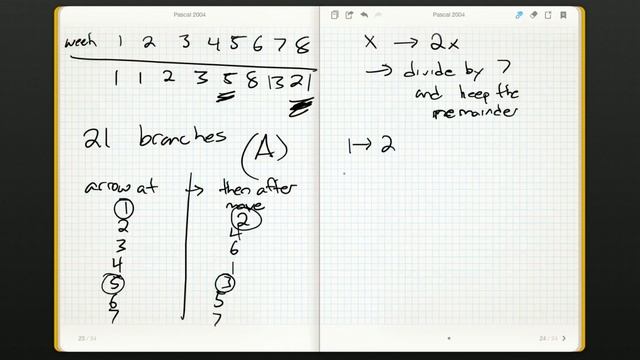 Pascal 2004
week 1 2 3 4 5 6 7 8
1 1 2 3 5 8 13 21
21 branches (A)
arrow at → then after move
1 2
2 4
3 6
4 1
5 3
6 5
7 7
23 / 34
Pascal 2004
x → 2x
→ divide by 7
and keep the
remainder
1 → 2
24 / 34